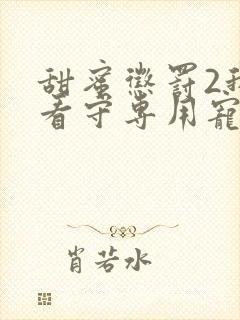 甜蜜懲罰2我
看守專用寵
肖若水